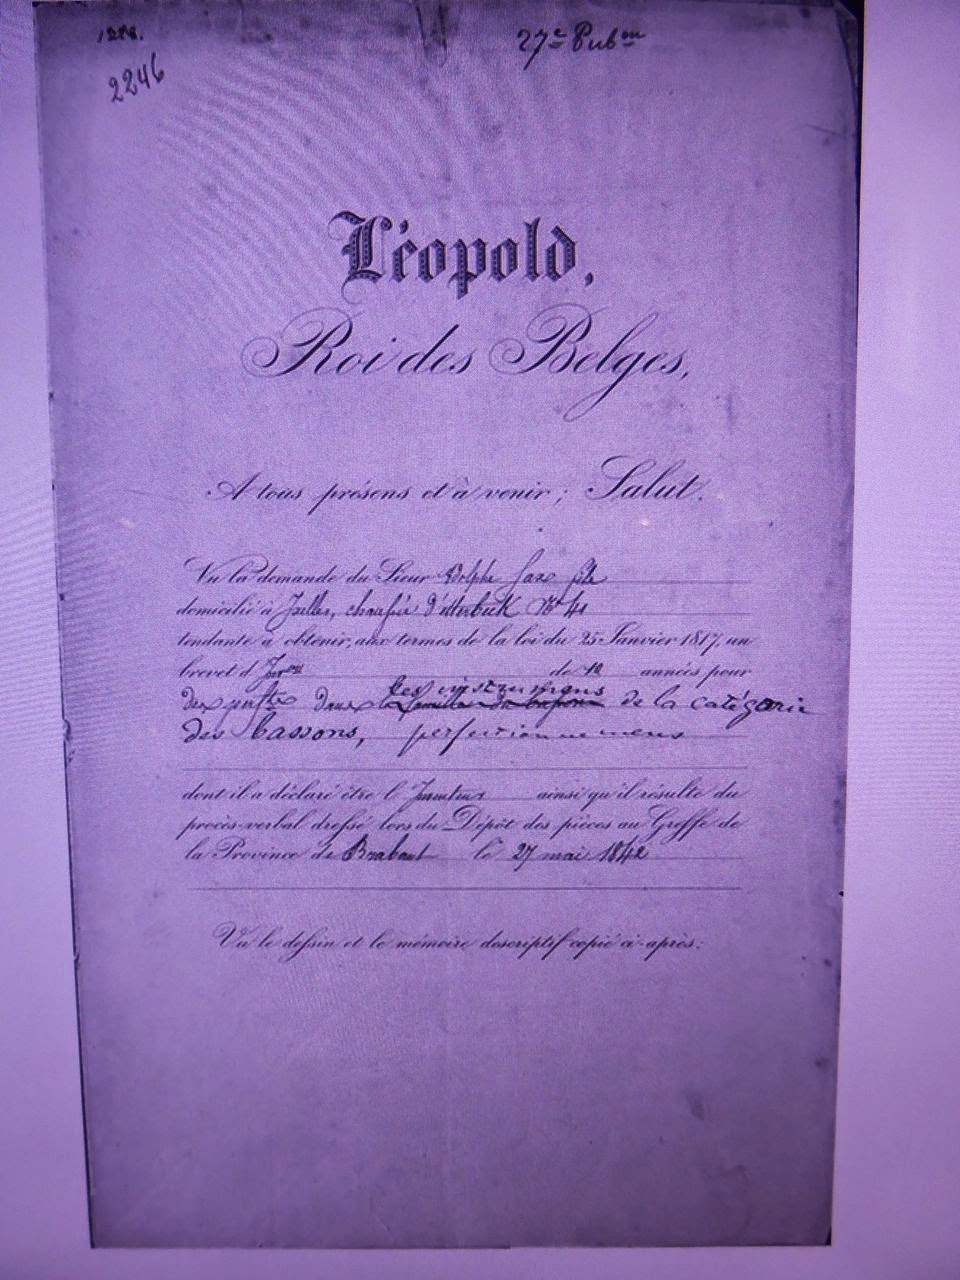 2246
27e Pubon
Léopold,
Roi des Belges,
A tous présens et à venir; Salut.
Vu la demande du Sieur Adolphe Sax fils
domicilié à Ixelles, chaussée d'Etterbeek No 41
tendante à obtenir, aux termes de la loi du 25 Janvier 1817, un
brevet d' Inon de 10 années pour
les instrumens
dans de la catégorie
des bassons,
dont il a déclaré être l'Inventeur ainsi qu'il résulte du
procès-verbal dressé lors du Dépôt des pièces au Greffe de
la Province de Brabant le 27 mai 1842
Vu le dessin et le mémoire descriptif copié ci-après: